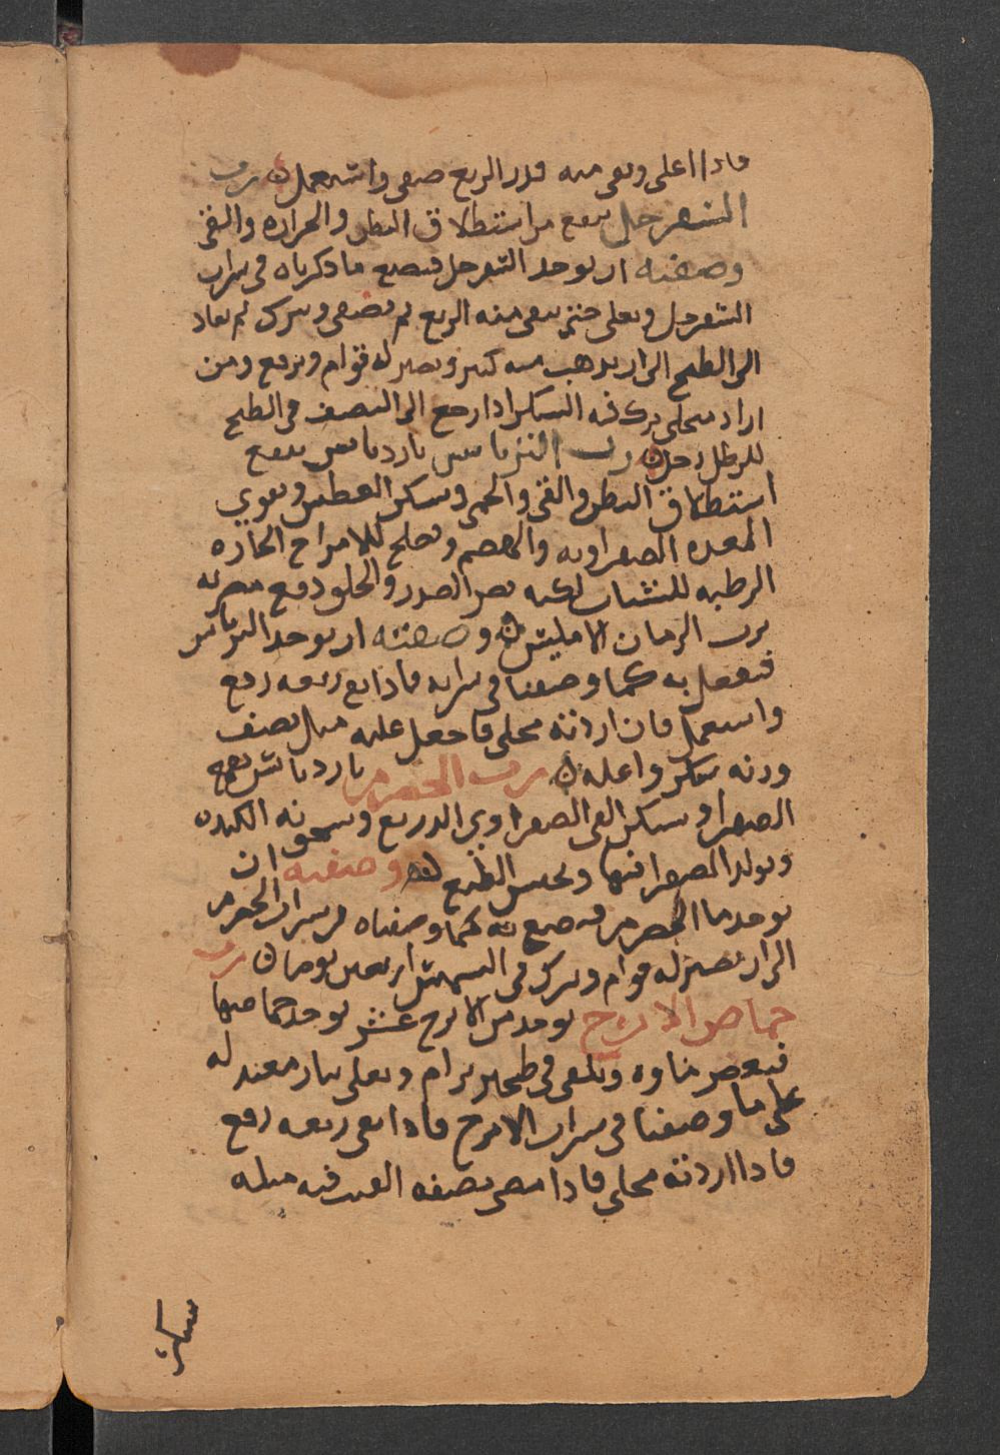 فاذا اغلى وبقى منه قدر الربع صفى واستعمل رب
السفرجل ينفع من استطلاق البطن والحراره والقى
وصفته ان يوخد السفرجل فيصنع ما ذكرناه فى شراب
السفرجل ويغلى حتى يبقى منه الربع ثم يصفى ويترك ثم يعاد
الى الطبخ الى ان يذهب منه كثير ويصير له قوام ويرفع ومن
اراد محلى يترك فيه السكر اذا رجع الى النصف فى الطبخ
للرطل رطل رب الترباس بارد يابس ينفع
استطلاق البطن والقى والحمى ويسكن العطش ويقوي
المعده الصفراويه والهضم ويصلح للامزاج الحاره
الرطبه للشباب لكنه يضر الصدر والحلق ودفع مضرته
برب الرمان الامليسى وصفته ان يوخد الترباس
فيفعل به كما وصفنا فى شرابه فاذا بقى ربعه رفع
واستعمل فان اردته محلى فاجعل عليه مثل نصف
وزنه سكر واغله رب الحصرم بارد يابس يقمع
الصفرا ويسكن القى الصفراوي الذريع وسخونه الكبد
وتولد الصفرا فيها ويحبس الطبع وصفته ان
يوخد ما الحصرم فيصنع به كما وصفناه فى شراب الحصرم
الى ان يصير له قوام ويترك فى الشمس اربعين يوما رب
حماض الاترج يوخد من الاترج عشر يوخد حماضها
فيعصر ماوه ويلقى فى طنجير برام ويغلى بنار معتدله
على ما وصفنا فى شراب الاترج فاذا بقى ربعه رفع
فاذا اردته محلى فاذا مضى نصفه القيت فيه مثله
سكر